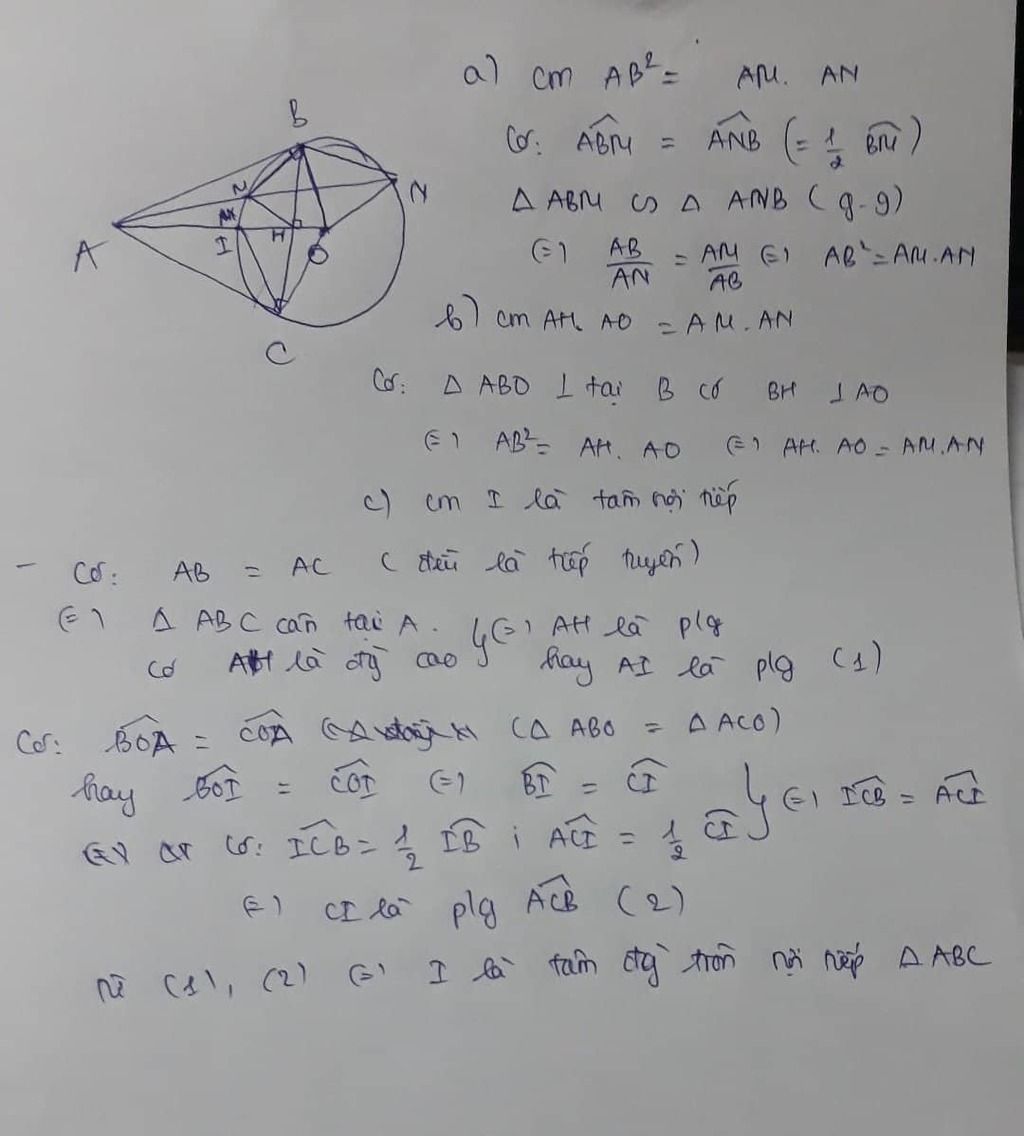 a) cm AB² = AM. AN
B
Có: ABM = ANB (= 1/2 BM)
M
N
Δ ABM ∽ Δ ANB (g-g)
A
I
H
O
(=) AB/AN = AM/AB (=) AB² = AM.AN
b) cm AH. AO = AM. AN
C
Có: Δ ABO ⊥ tại B có BH ⊥ AO
(=) AB² = AH. AO (=) AH. AO = AM.AN
c) cm I là tâm nội tiếp
- Có: AB = AC ( đều là tiếp tuyến)
(=) Δ ABC cân tại A. } (=) AH là p/g
Có AH là đg cao hay AI là p/g (1)
Có: BOA = COA (Δ ABO = Δ ACO)
hay BOI = COI (=) BI = CI } (=) ICB = ACI
Có: ICB = 1/2 IB ; ACI = 1/2 CI
(=) CI là p/g ACB (2)
Từ (1), (2) (=) I là tâm đg tròn nội tiếp Δ ABC